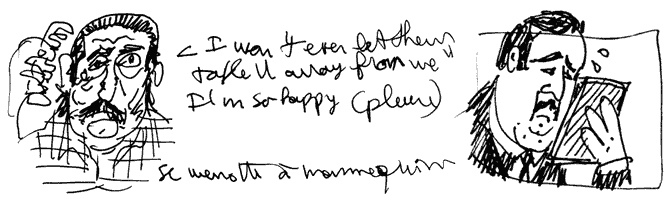 < I won't ever let them
take U away from me"
I'm so happy (pleure)
se menotte à mannequin